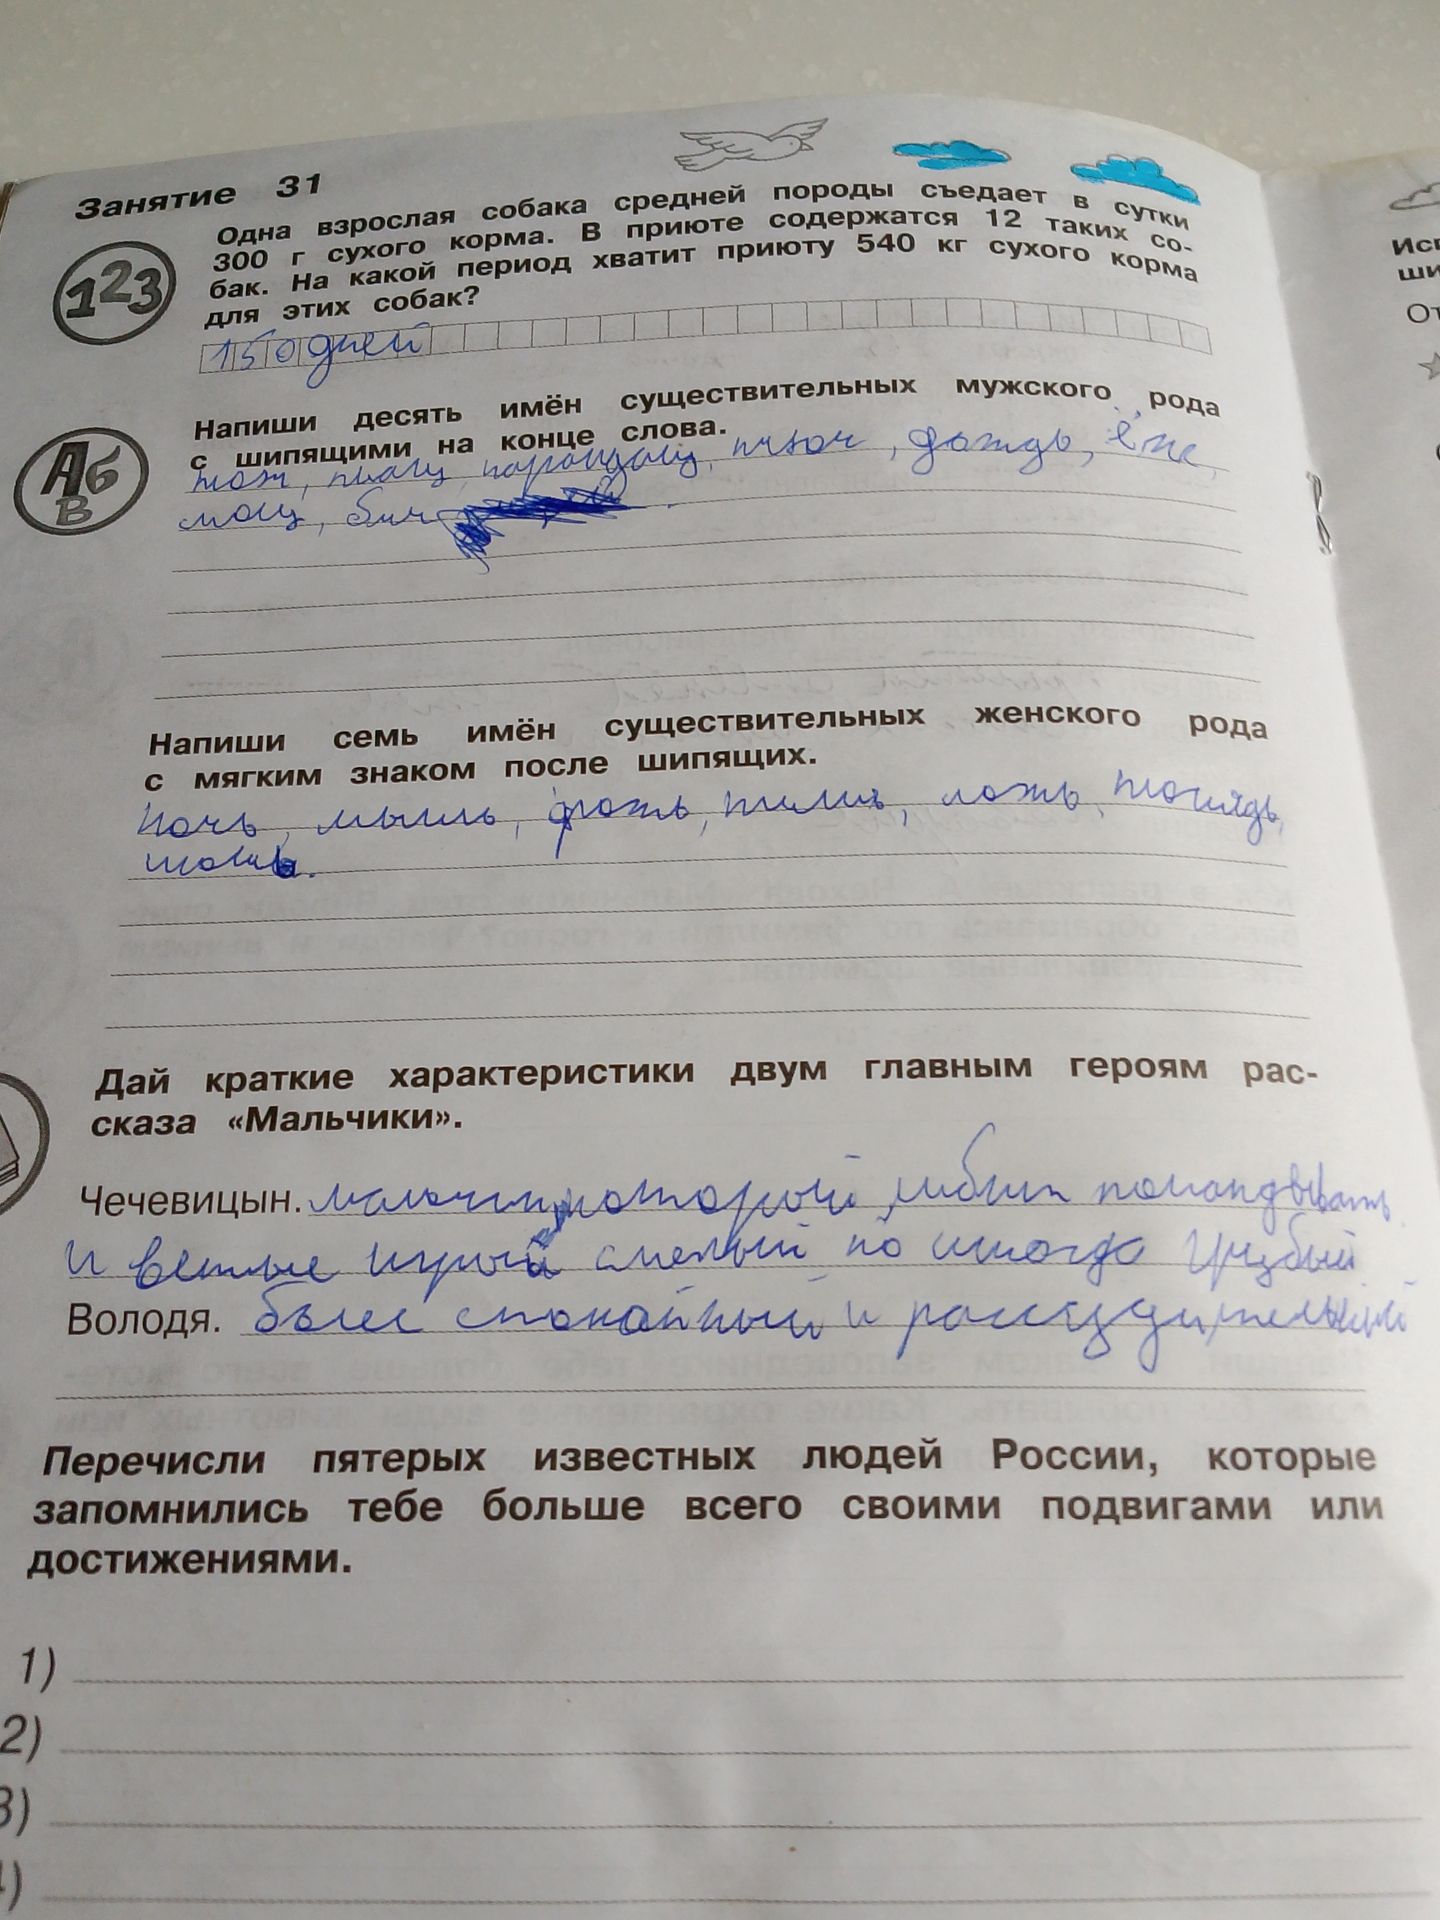 Занятие 31
123
Одна взрослая собака средней породы съедает в сутки
300 г сухого корма. В приюте содержатся 12 таких со-
бак. На какой период хватит приюту 540 кг сухого корма
для этих собак?
150 дней
АбВ
Напиши десять имён существительных мужского рода
с шипящими на конце слова.
плащ, карандаш, ключ, дождь, ёж,
бич
Напиши семь имён существительных женского рода
с мягким знаком после шипящих.
ночь, мышь, рожь, ложь, площядь,
Дай краткие характеристики двум главным героям рас-
сказа «Мальчики».
Чечевицын. мальчик, которой любит командывать
и смелый но иногда грубый
Володя. более спокойный и рассудительный
Перечисли пятерых известных людей России, которые
запомнились тебе больше всего своими подвигами или
достижениями.
1)
2)
3)
4)
Исп
ши
От